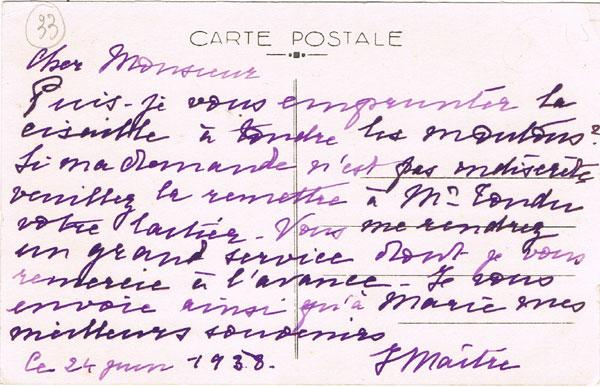 33
CARTE POSTALE
Cher Monsieur
Puis-je vous emprunter la
cisaille à tondre les moutons?
Si ma demande n'est pas indiscrète
veuillez la remettre à Mr Tondu
votre laitier - Vous me rendrez
un grand service dont je vous
remercie à l'avance - Je vous
envoie ainsi qu'à Marie mes
meilleurs souvenirs
Le 24 juin 1938.
J Maître